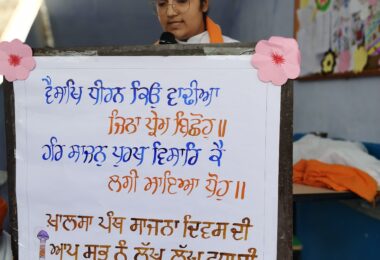 ਵੈਸਾਖਿ ਧੀਰਨ ਕਿਉ ਵਾਢੀਆ
ਜਿਨਾ ਪ੍ਰੇਮ ਬਿਛੋਹੁ ॥
ਹਰਿ ਸਾਜਨੁ ਪੁਰਖੁ ਵਿਸਾਰਿ ਕੈ
ਲਗੀ ਮਾਇਆ ਧੋਹੁ ॥
ਖਾਲਸਾ ਪੰਥ ਸਾਜਨਾ ਦਿਵਸ ਦੀ
ਆਪ ਸਭ ਨੂੰ ਲੱਖ ਲੱਖ ਵਧਾਈ